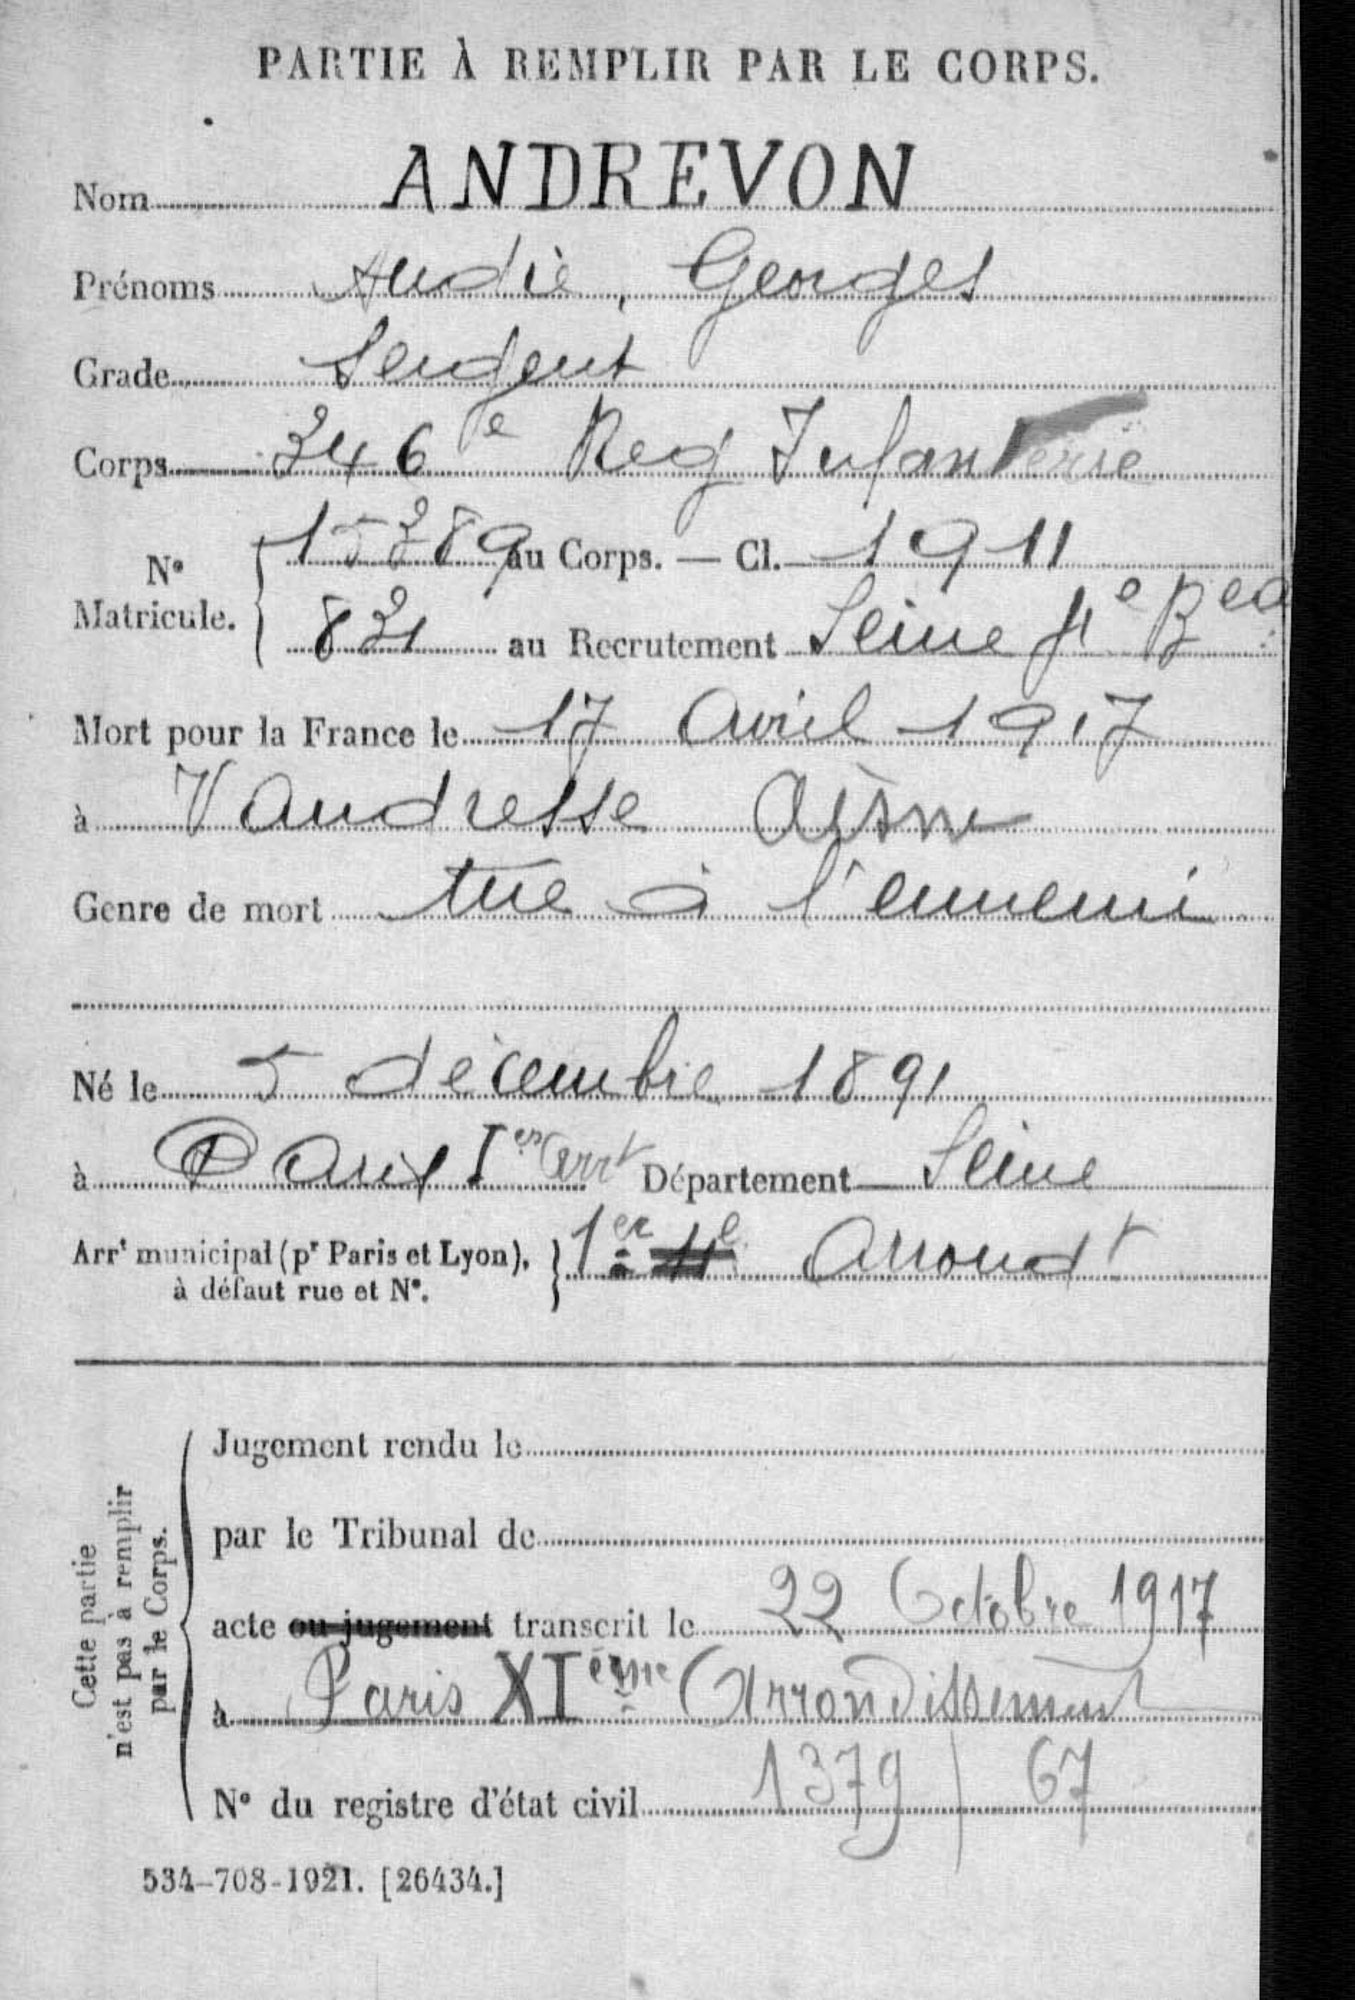 PARTIE À REMPLIR PAR LE CORPS.
Nom ANDREVON
Prénoms André, Georges
Grade Sergent
Corps 346e Reg Infanterie
No Matricule. 15389 au Corps. — Cl. 1911
831 au Recrutement Seine 4e Beau
Mort pour la France le 17 Avril 1917
à Vandresse Aisne
Genre de mort tué à l'ennemi
Né le 5 décembre 1891
à Paris Ier arrt Département Seine
Arrt municipal (pr Paris et Lyon), à défaut rue et No. 1er Arrondt
Cette partie n'est pas à remplir par le Corps.
Jugement rendu le
par le Tribunal de
acte ou jugement transcrit le 22 Octobre 1917
à Paris XIème Arrondissement
No du registre d'état civil 1379 / 67
534-708-1921. [26434.]